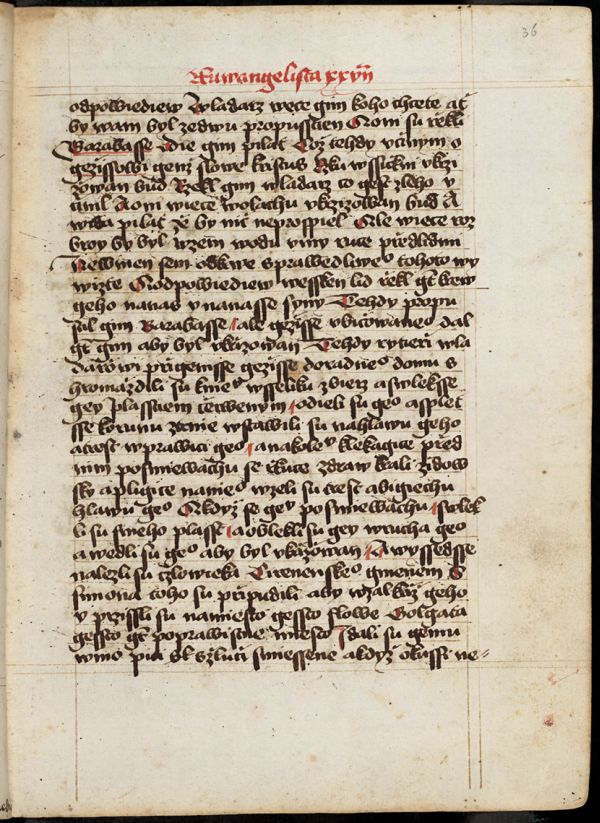 36
Euwangelista xxvii
odpowiediew wladarz wece gim koho chcete at
by wam byl zedwu propusstien A oni su rekli
Barabasse Die gim pilat Coz tehdy vcinym o
gezissowi genz slowe kristus Rku wssickni vkrzi
zowan bud Rzekl gim wladarz co gest zleho v
cinil A oni wiece wolachu vkrzizowan bud A
wida pilat ze by nic neprospiel Ale wiece roz
broy by byl wzem wodu vmy ruce przed lidmi
Newinen sem odkrwe sprawedliweo tohoto wy
wizte A odpowiediew wessken lid rekl gt krew
geho nanas y nanasse syny Tehdy propu
stil gim Barabasse ale gezisse vbicowaneo dal
gt gim aby byl vkrizowan Tehdy rytieri wla
darowi prigemsse gezisse doradneo domu s
hromazdili su kniemu wssicku zbierz a swleksse
gey plasstiem czrwenym odieli su geo a splet
sse korunu z trnie wstawili su nahlawu geho
a trest wprawici geo a nakoleny klekagice pred
nim posmiewachu se rkuce zdraw krali zidow
sky a pligice naneo wzeli su trest a bigiechu
hlawu geo A kdyz se gey posmiewachu swlek
li su sneho plasst a oblekli su gey wrucha geo
a wedli su geo aby byl vkrizowan A wyssedsse
nalezli su czlowieka Cirenenskeo gmenem S
simona toho su pripudili aby wzal kriz geho
y przissli su namiesto gessto slowe Golgata
gessto gt poprawistne miesto I dali su gemu
wino piti sl szluci smiessene a kdyz okusil ne-